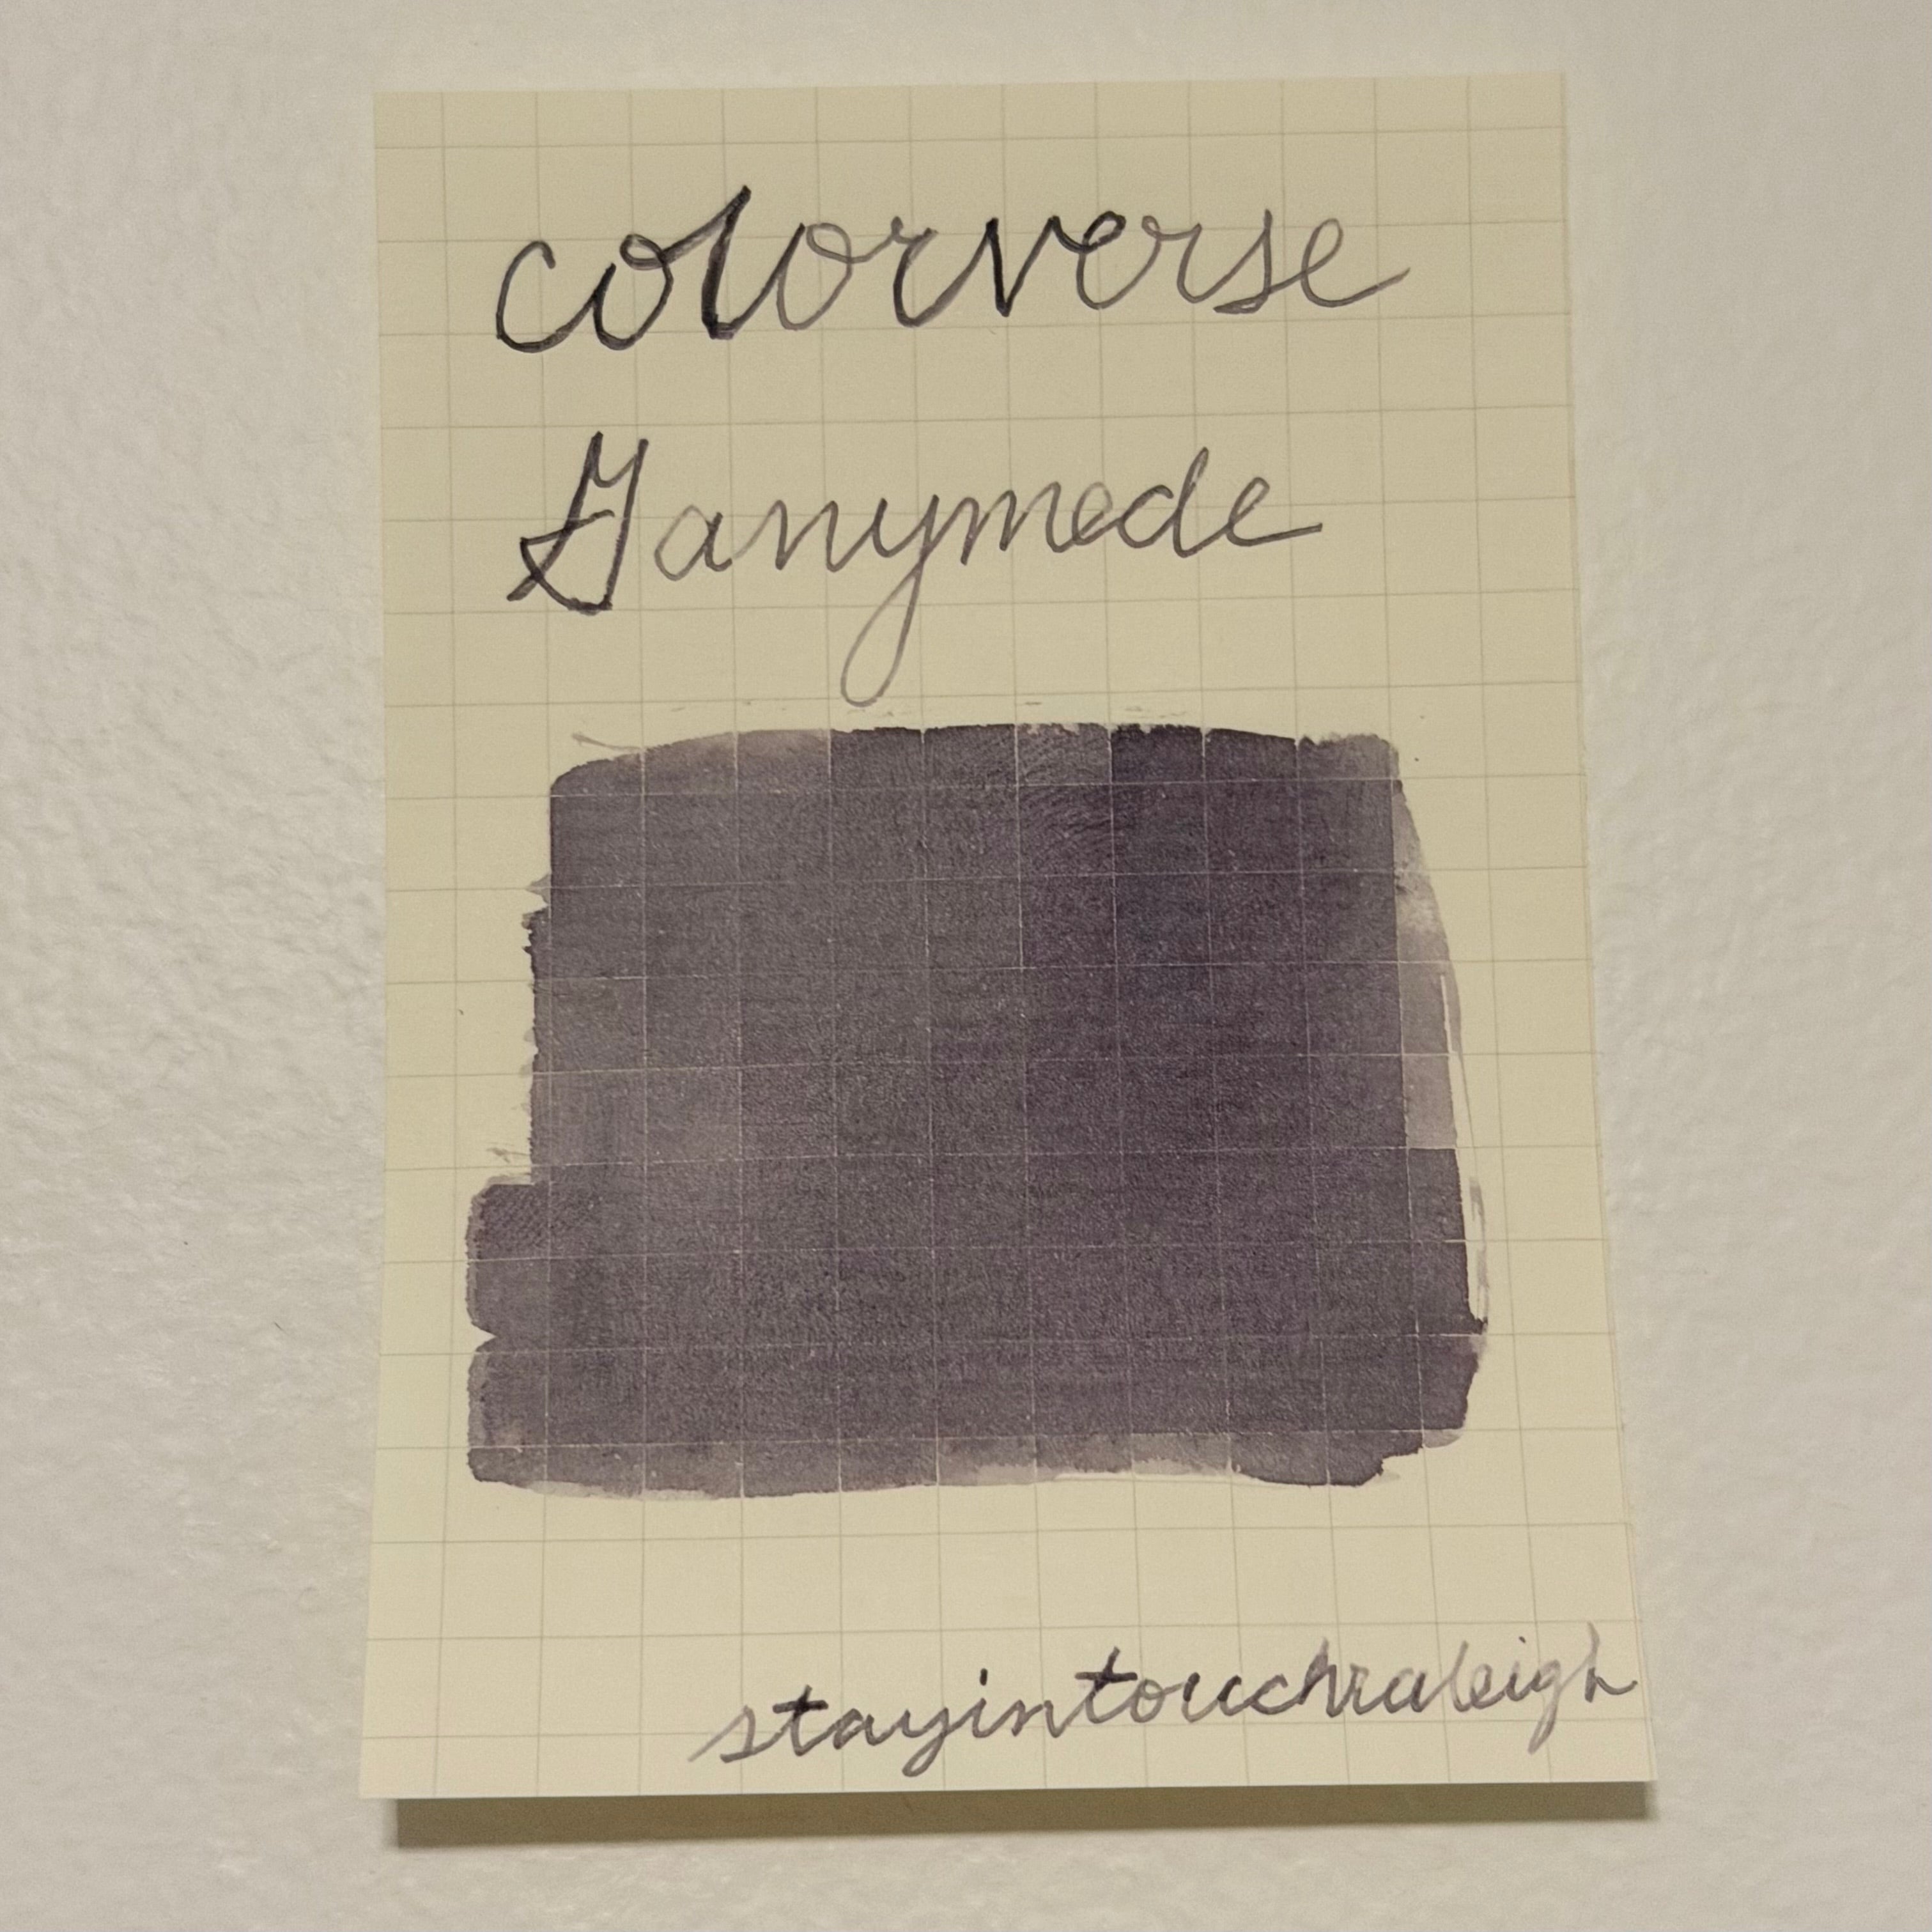 colorverse
Ganymede
stayintouchraleigh